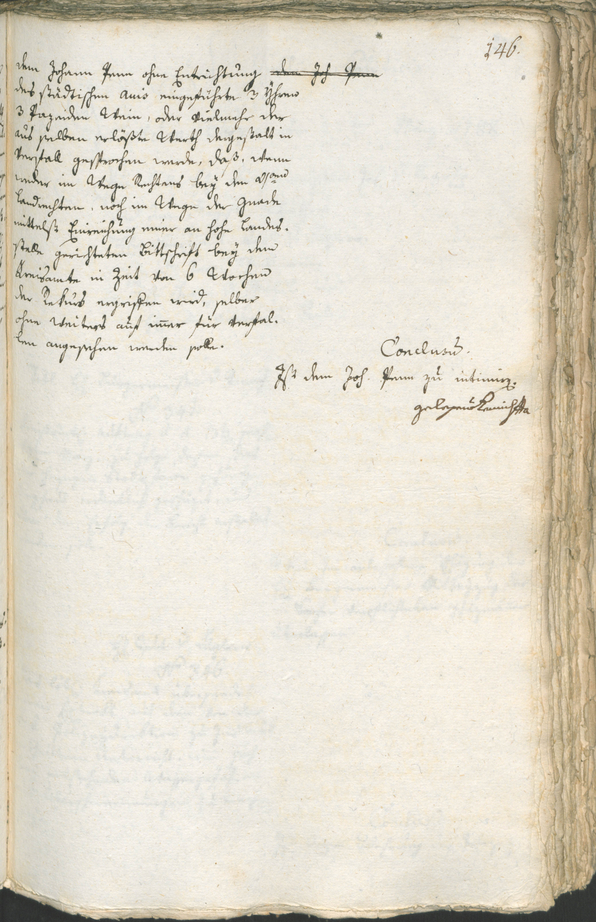 146.
dem Johann Penn ohne Entrichtung dem Joh Penn
des städtischen eingeführte 3 Yhren
3 Pazeiden Wein, oder vielmehr der
aus selben erlößte Werth dergestalt in
Verfall gesprochen werde, daß, wenn
weder im Wege Rechtens bey den
Landrechten, noch im Wege der Gnade
mittelst Einreichung einer an hohe Landes-
stelle gerichteten Bittschrift bey dem
Kreisamte in Zeit von 6 Wochen
der Rekurs ergriffen wird, selber
ohne weiters auf immer für verfal-
len angesehen werden solle.
Conclusū.
Ist dem Joh. Penn zu intimir.